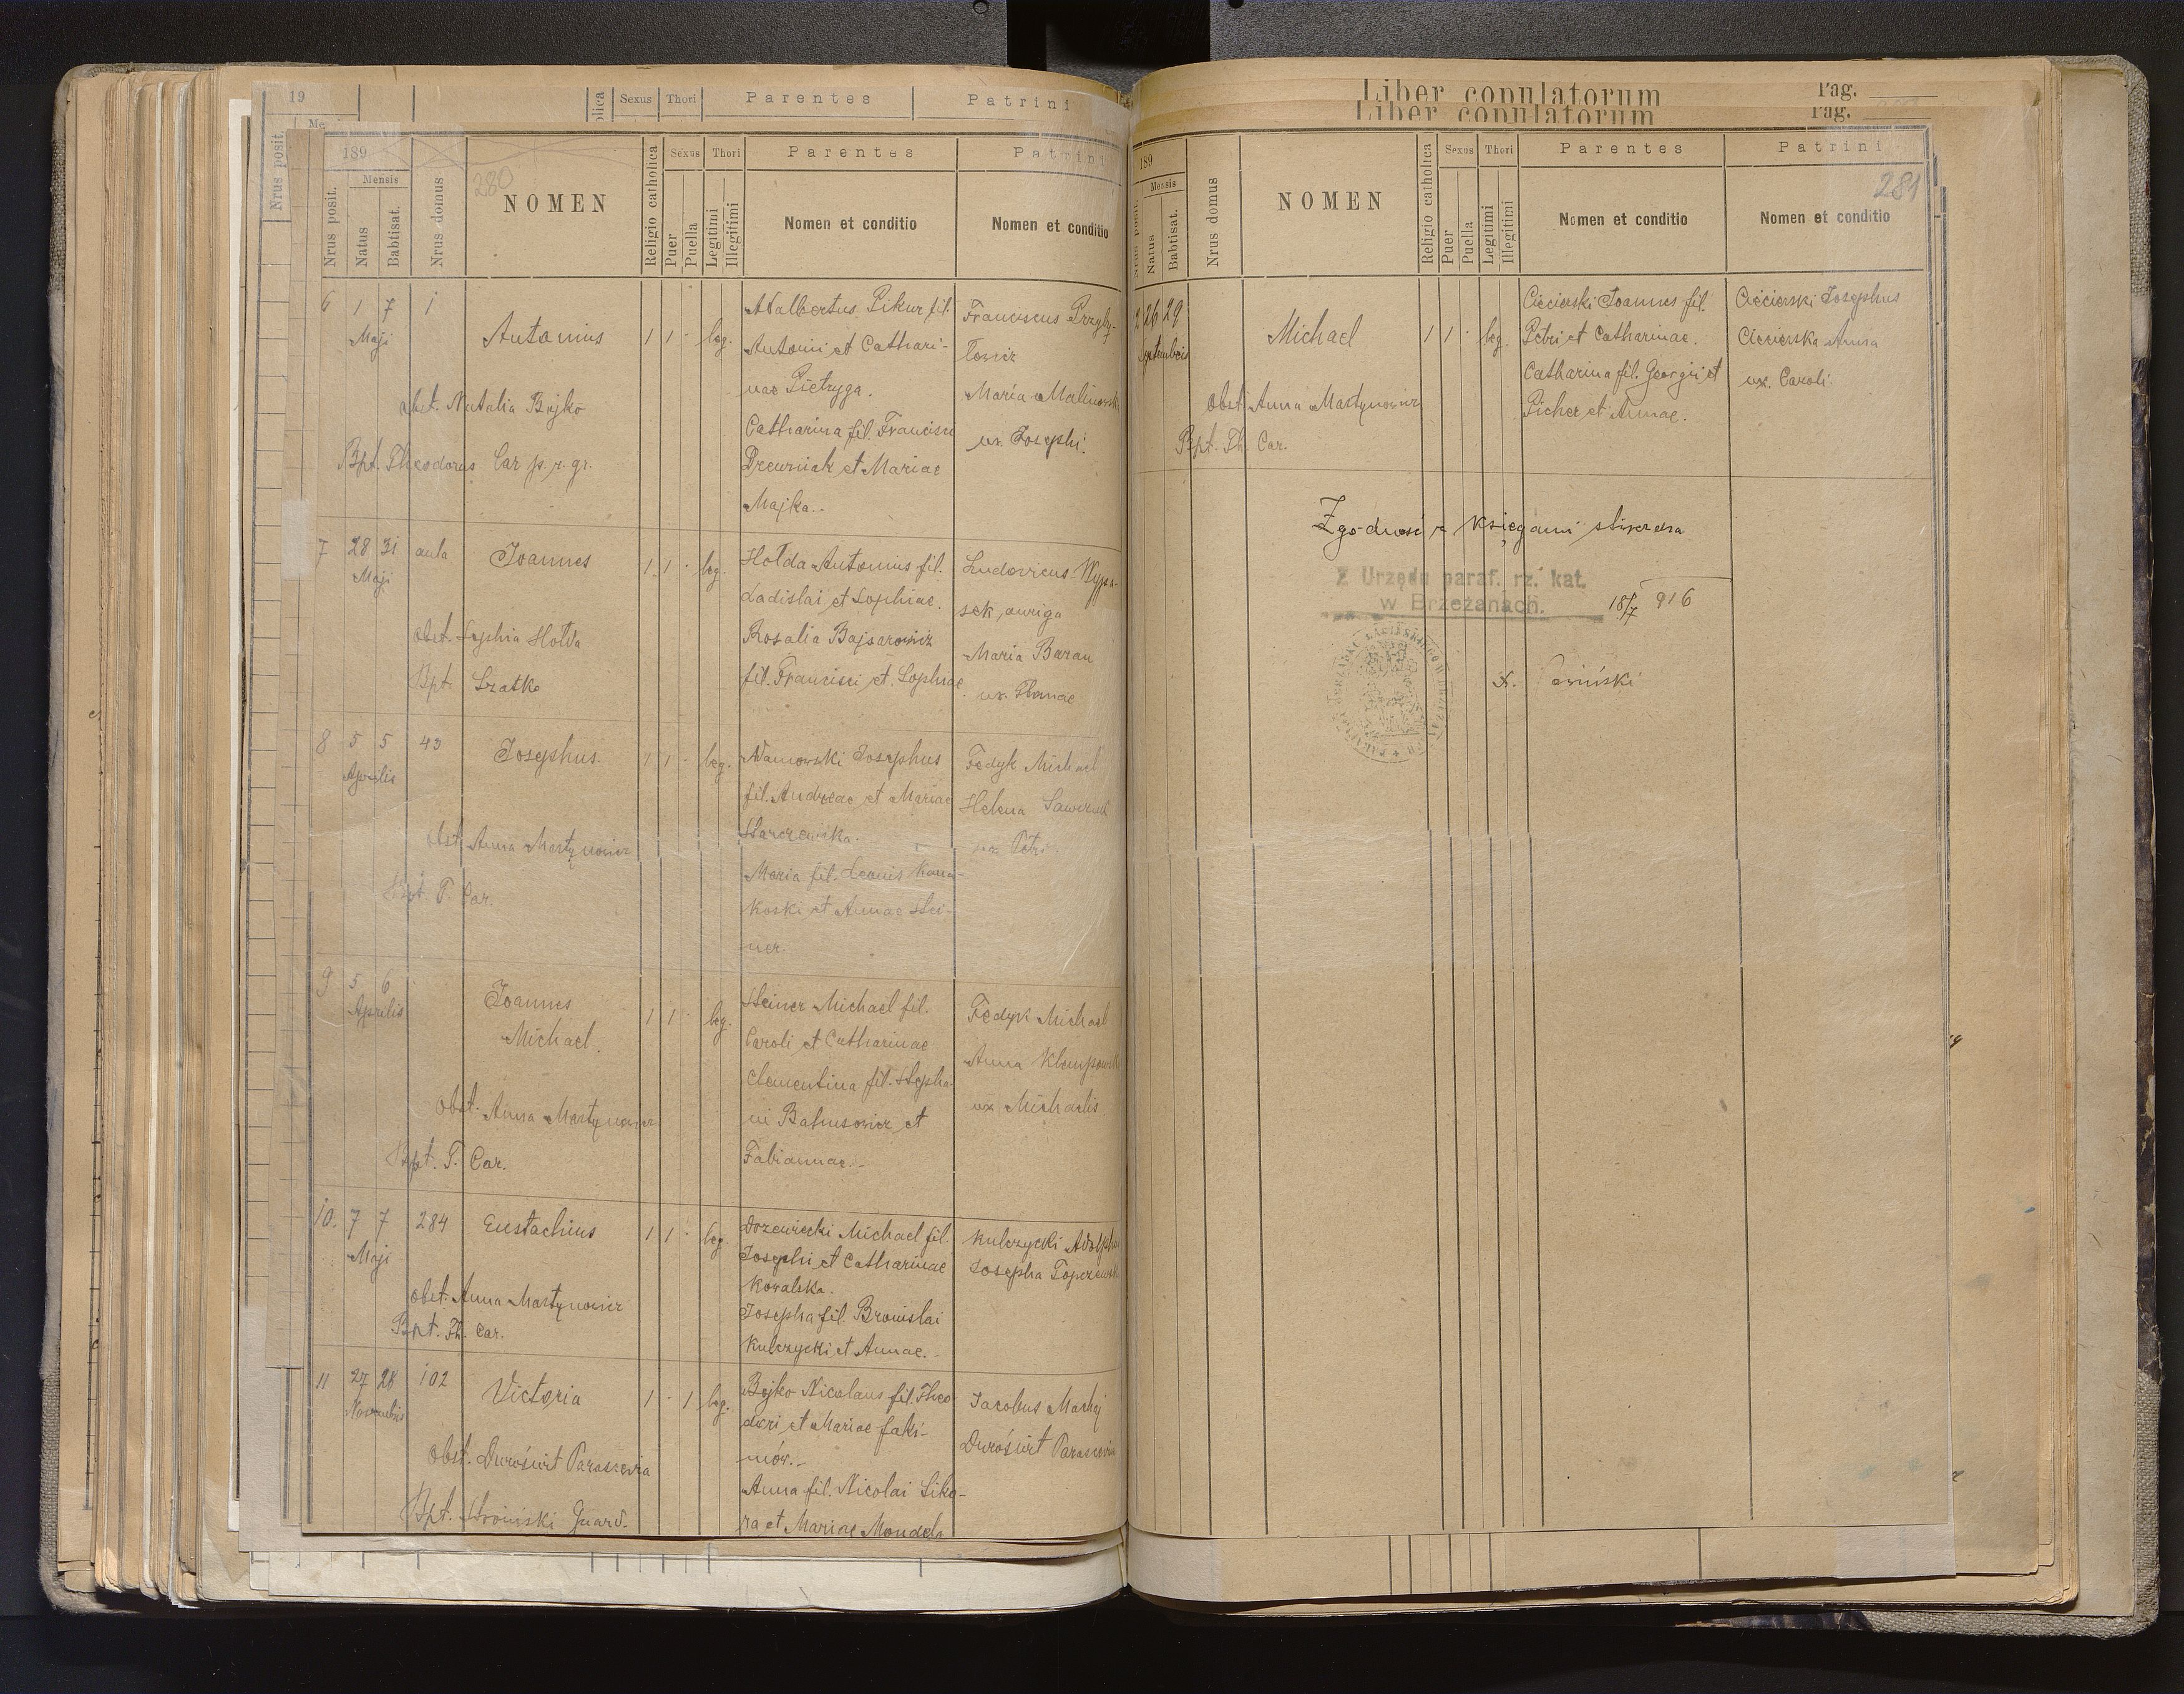 19
Nrus posit.
Sexus Thori Parentes Patrini
189
280
Nrus posit.
Mensis
Natus
Babtisat.
Nrus domus
NOMEN
Religio catholica
Sexus
Puer
Puella
Thori
Legitimi
Illegitimi
Parentes
Nomen et conditio
Patrini
Nomen et conditio
6 1 7 1
Maji
Antonius
1 1 - leg.
Adalbertus Pikur fil.
Antonii et Cathari-
nae Pietryga.
Catharina fil. Francisci
Drewniak et Mariae
Majka.-
Franciscus Przyby-
łowicz
Maria Malinowsk
ux. Josephi.
obst. Natalia Bojko
Bpt. Theodorus Car p. r. gr.
7 28 31 aula
Maji
Joannes
1 1 - leg.
Hołda Antonius fil.
Ladislai et Sophiae.
Rosalia Bajsarowicz
fil. Francisci et Sophiae.
Ludovicus Wypa-
sek, auriga
Maria Baran
ux.
obst. Sophia Hołda
Bpt. Szatko
8 5 5 43
Aprilis
Josephus
1 1 - leg.
Josephus
fil. Andreae et Mariae
Maria fil. Leonis Kana-
koski et Annae Stei-
ner.
Fedyk Michael
Helena
ux. Petri.
obst. Anna Martynowicz
Bpt. T. Car.
9 5 6
Aprilis
Joannes
Michael.
1 1 - leg.
Steiner Michael fil.
Caroli et Catharinae
Clementina fil. Stepha-
ni Batusowicz et
Fabiannae.-
Fedyk Michael
Anna
ux. Michaelis
obst. Anna Martynowicz
Bpt. T. Car.
10. 7 7 284
Maji
Eustachius
1 1 - leg.
Drzewiecki Michael fil.
Josephi et Catharinae
Kowalska.
Josepha fil. Bronislai
Kulczycki et Annae.-
Kulczycki Adolphus
Josepha
obst. Anna Martynowicz
Bpt. Th. Car.
11 27 28 102
Novembris
Victoria
1 - 1 leg.
Bojko Nicolaus fil. Theo-
dori et Mariae Jaki-
mów.-
Anna fil. Nicolai Siko-
ra et Mariae Mondela
Jacobus
Dwoświt
obst. Dwoświt Paraszewa
Bpt. Guard.
Liber copulatorum Pag.
Liber copulatorum Pag.
189
281
Nrus posit.
Mensis
Natus
Babtisat.
Nrus domus
NOMEN
Religio catholica
Sexus
Puer
Puella
Thori
Legitimi
Illegitimi
Parentes
Nomen et conditio
Patrini
Nomen et conditio
2 26 29
Septembris
Michael
1 1 - leg.
Ciecierski Joannes fil.
Petri et Catharinae.
Catharina fil. Georgii et
Picher et Annae.
Ciecierski Josephus
Ciecierska Anna
ux. Caroli.
obst. Anna Martynowicz
Bpt. Th. Car.
Zgodność z księgami stwierdza
Z Urzędu paraf. rz. kat.
w Brzeżanach.
18/7 916
X.